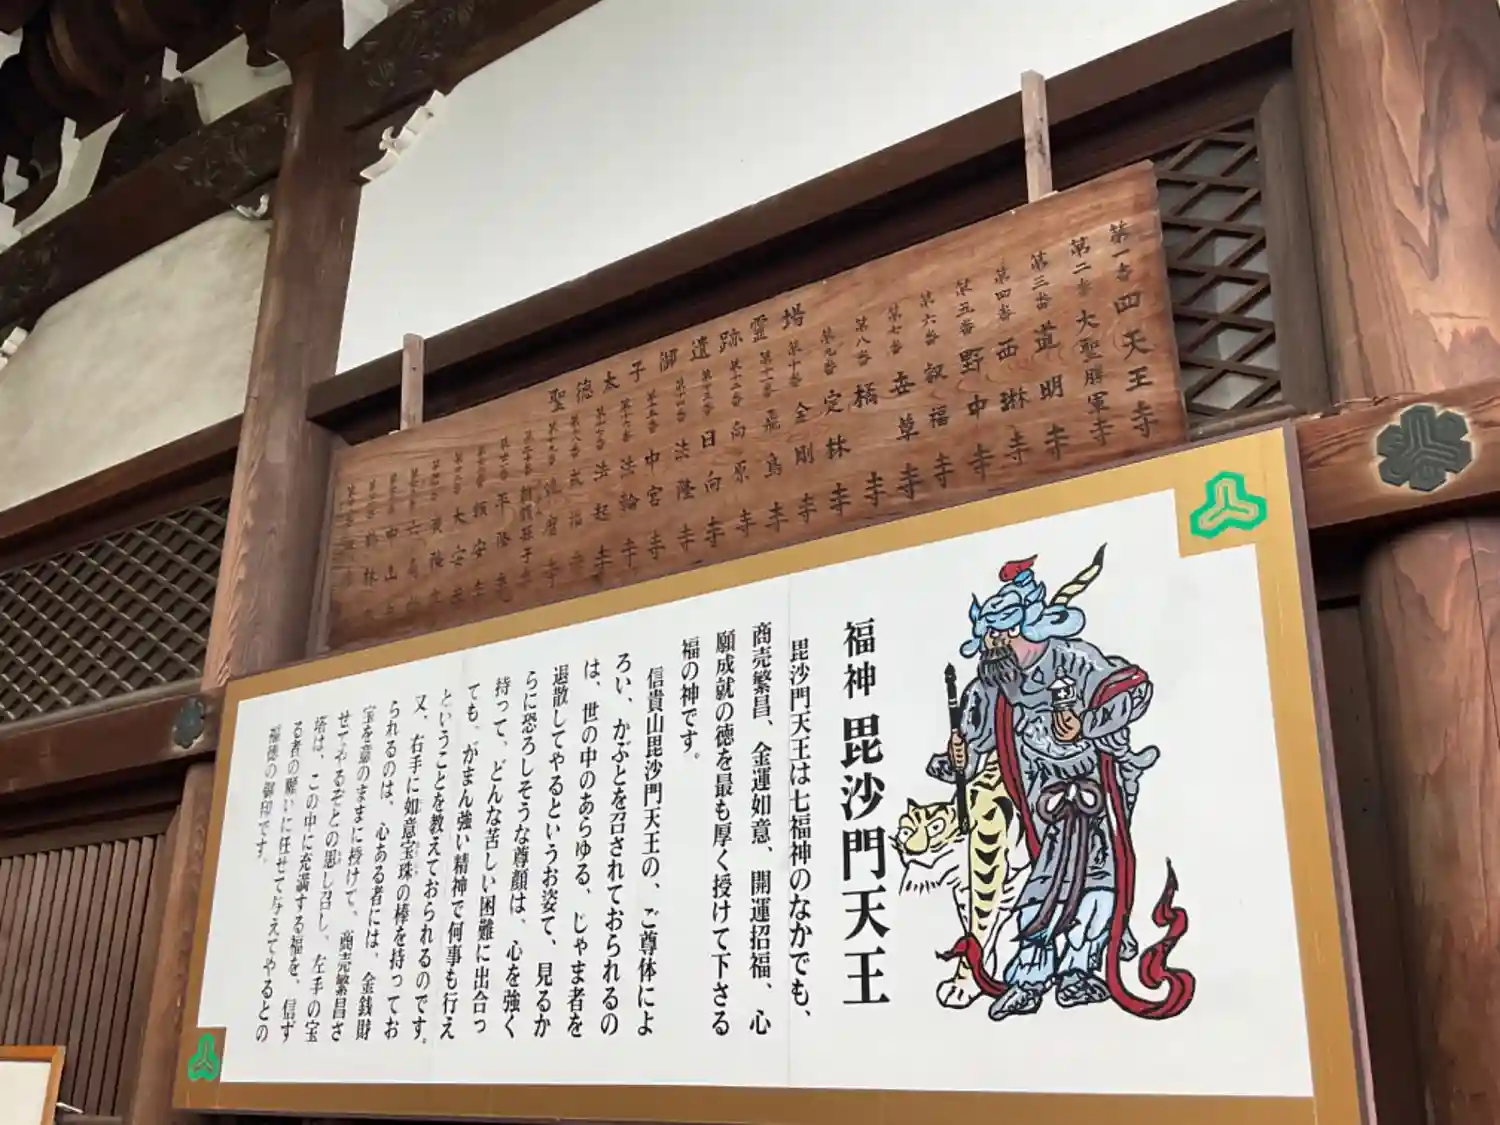 聖徳太子御遺跡霊場
第一番 四天王寺
第二番 大聖勝軍寺
第三番 道明寺
第四番 西琳寺
第五番 野中寺
第六番 叡福寺
第七番
第八番 橘寺
第九番 定林寺
第十番 金剛寺
第十一番 飛鳥寺
第十二番 向原寺
第十三番 日向寺
第十四番 法隆寺
第十五番 中宮寺
第十六番 法輪寺
第十七番 法起寺
第十八番 成福寺
第十九番 達磨寺
平隆寺
額安寺
大安寺
中山寺
福神 毘沙門天王
毘沙門天王は七福神のなかでも、
商売繁昌、金運如意、開運招福、心
願成就の徳を最も厚く授けて下さる
福の神です。
信貴山毘沙門天王の、ご尊体によ
ろい、かぶとを召されておられるの
は、世の中のあらゆる、じゃま者を
退散してやるというお姿て、見るか
らに恐ろしそうな尊顔は、心を強く
持って、どんな苦しい困難に出合っ
ても、がまん強い精神で何事も行え
ということを教えておられるのです。
又、右手に如意宝珠の棒を持ってお
られるのは、心ある者には、金銭財
宝を意のままに授けて、商売繁昌さ
せてやるぞとの思し召し、左手の宝
塔は、この中に充満する福を、信ず
る者の願いに任せて与えてやるとの
福徳の御印です。